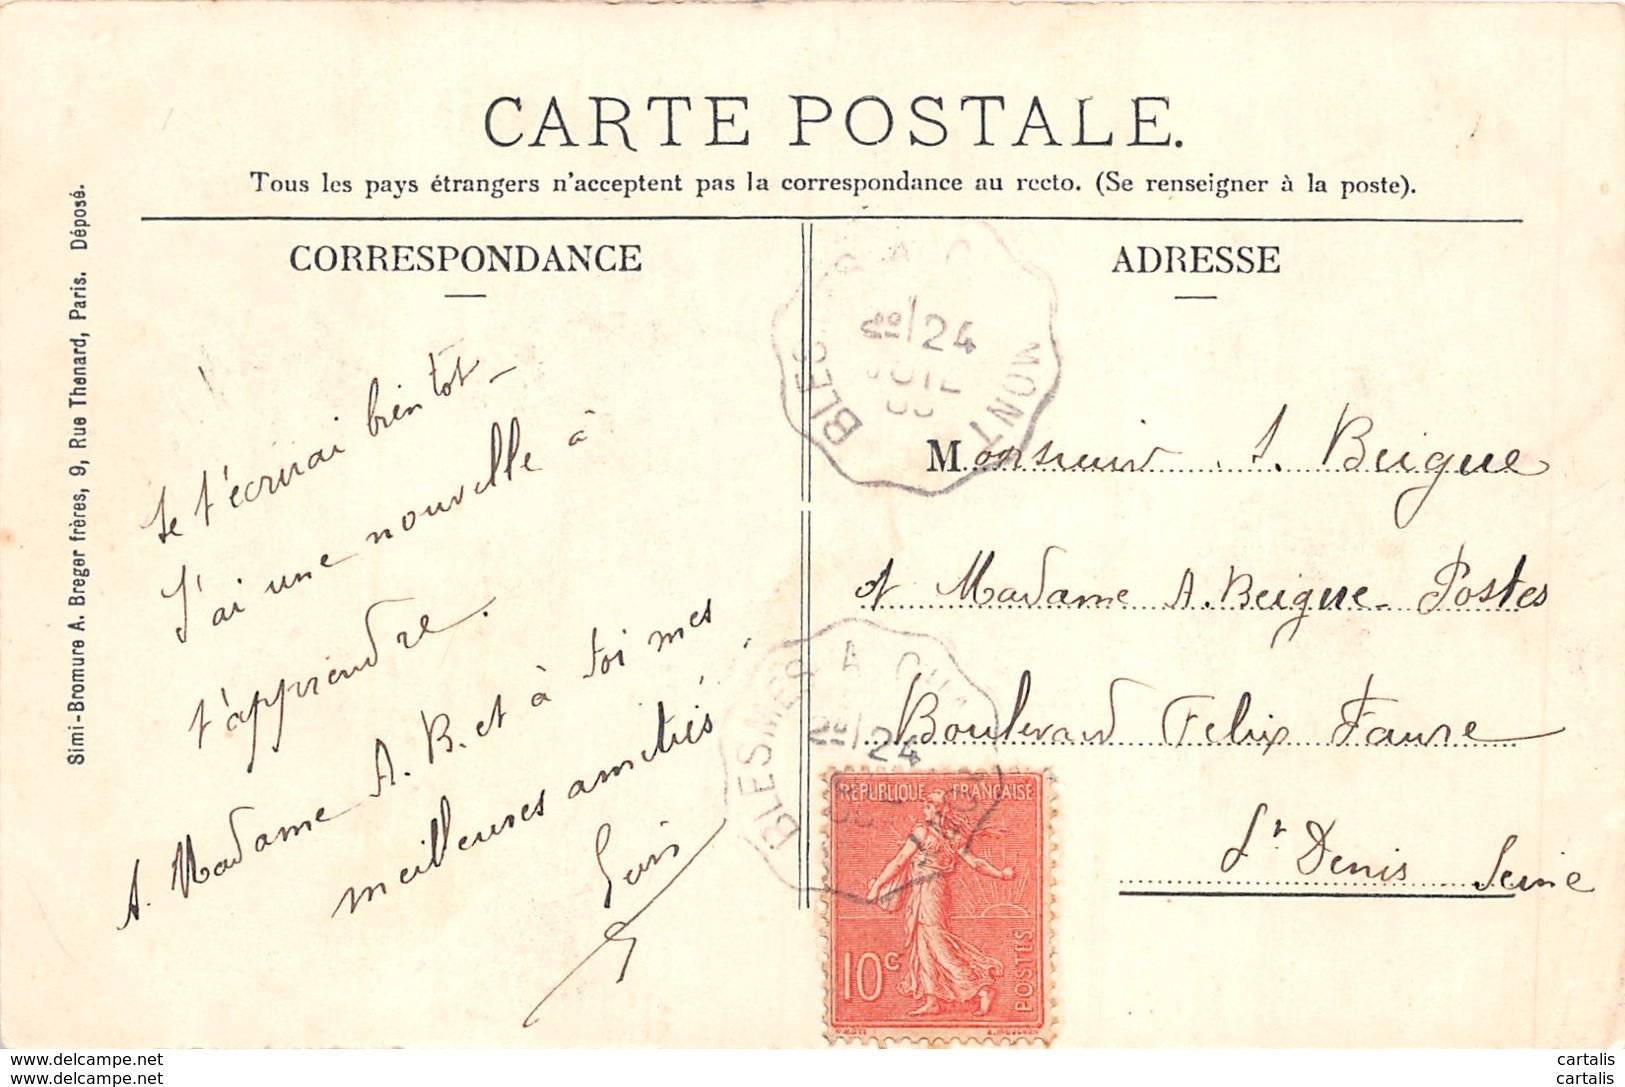 CARTE POSTALE.
Tous les pays étrangers n'acceptent pas la correspondance au recto. (Se renseigner à la poste).
Simi-Bromure A. Breger frères, 9, Rue Thenard, Paris. Déposé.
CORRESPONDANCE
Je t'écrirai bientot_
J'ai une nouvelle à
t'apprendre.
A. Madame A. B. et à toi mes
meilleures amitiés.
ADRESSE
24
JUIL
MONT
Monsieur A. Beigue
et Madame A. Beigue_ Postes
Boulevard Felix Faure
St Denis Seine
BLESMER A
24
RÉPUBLIQUE FRANÇAISE
10c
POSTES
cartalis
cartalis
delcampe.net
delcampe.net